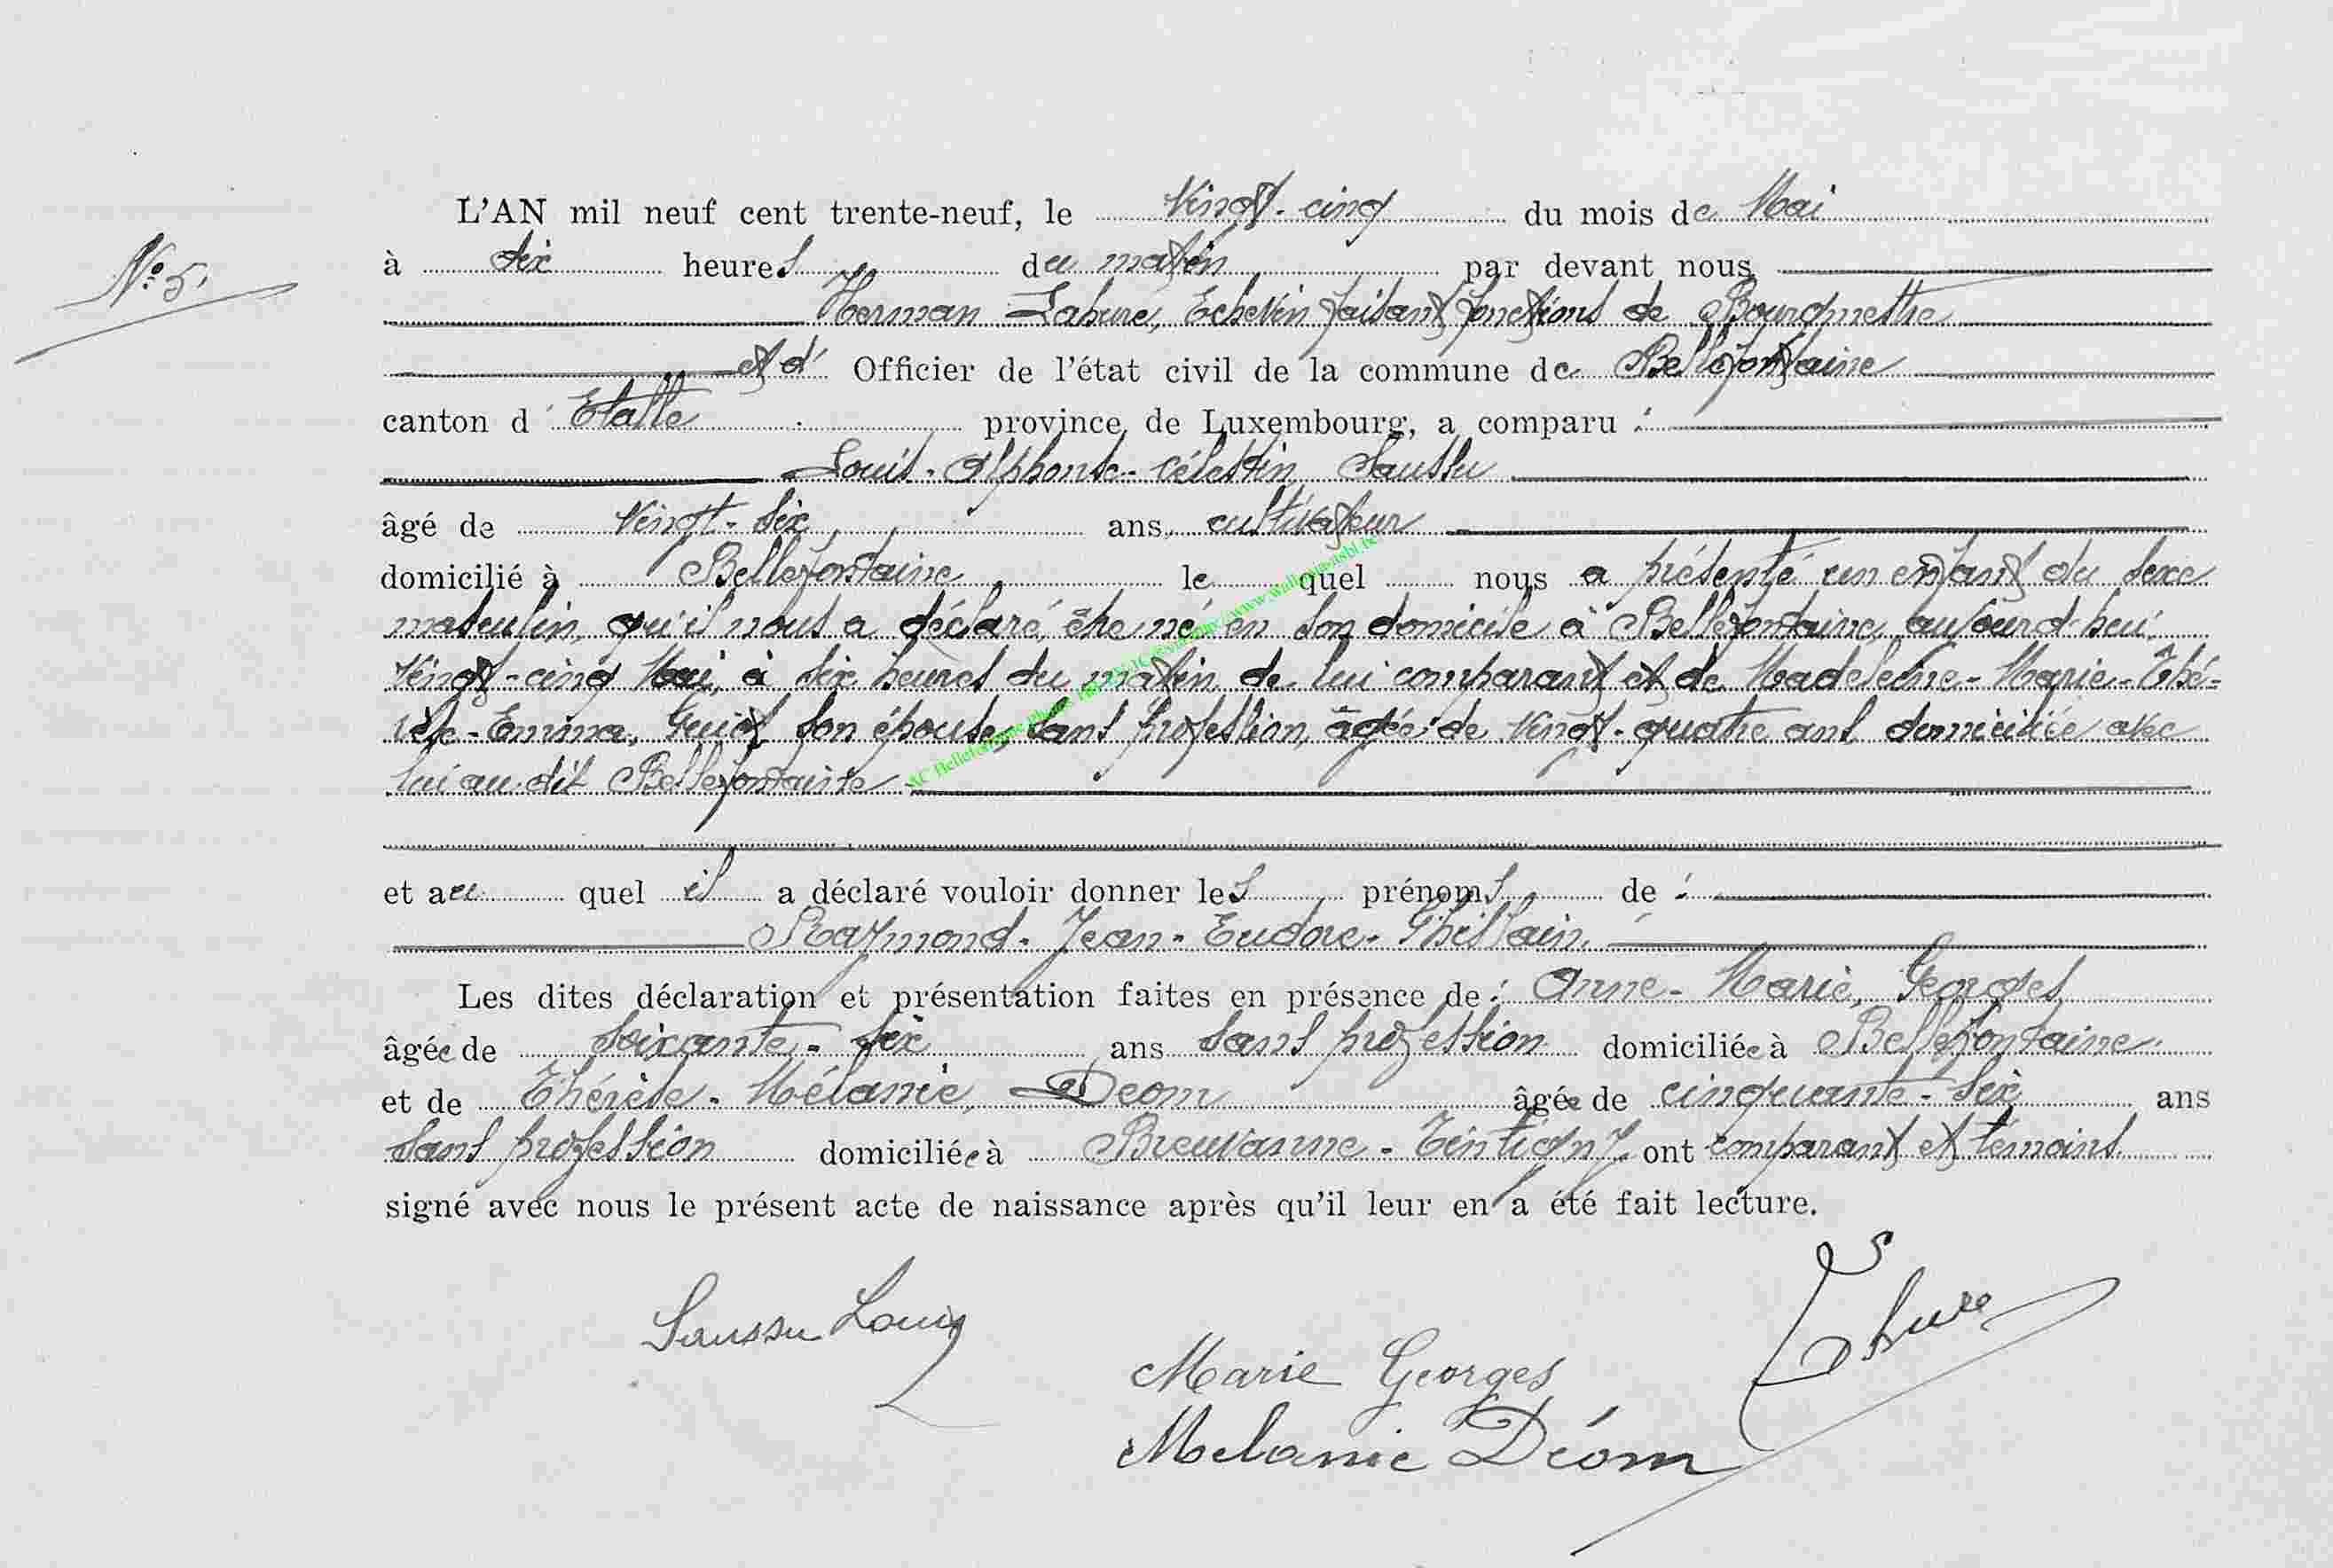 L'AN mil neuf cent trente-neuf, le Vingt-cinq du mois de Mai
N° 5.
à dix heures du matin par devant nous
Herman Lahure, Echevin faisant fonctions de Bourgmestre
et d' Officier de l'état civil de la commune de Bellefontaine
canton d'Etalle province de Luxembourg, a comparu :
Louis-Alphonse-Célestin, Saussu
âgé de Vingt-six ans, cultivateur
domicilié à Bellefontaine le quel nous a présenté un enfant du sexe
masculin, qu'il nous a déclaré, être né, en son domicile à Bellefontaine, aujourd'hui,
Vingt-cinq Mai, à six heures du matin, de lui comparant et de Madeleine-Marie-Thé-
rèse-Emma, son épouse, sans profession, âgée de Vingt-quatre ans, domiciliée avec
lui au dit Bellefontaine
et au quel il a déclaré vouloir donner les prénoms de :
Raymond-Jean-Eudore-Ghislain.
Les dites déclaration et présentation faites en présence de : Anne-Marie, Georges
âgée de soixante-six ans sans profession domiciliée à Bellefontaine
et de Thérèse-Mélanie, Deom âgée de cinquante-six ans
sans profession domiciliée à Breuvanne-Tintigny, ont comparant et témoins
signé avec nous le présent acte de naissance après qu'il leur en a été fait lecture.
Saussu Louis
Lahure
Marie Georges
Melanie Déom